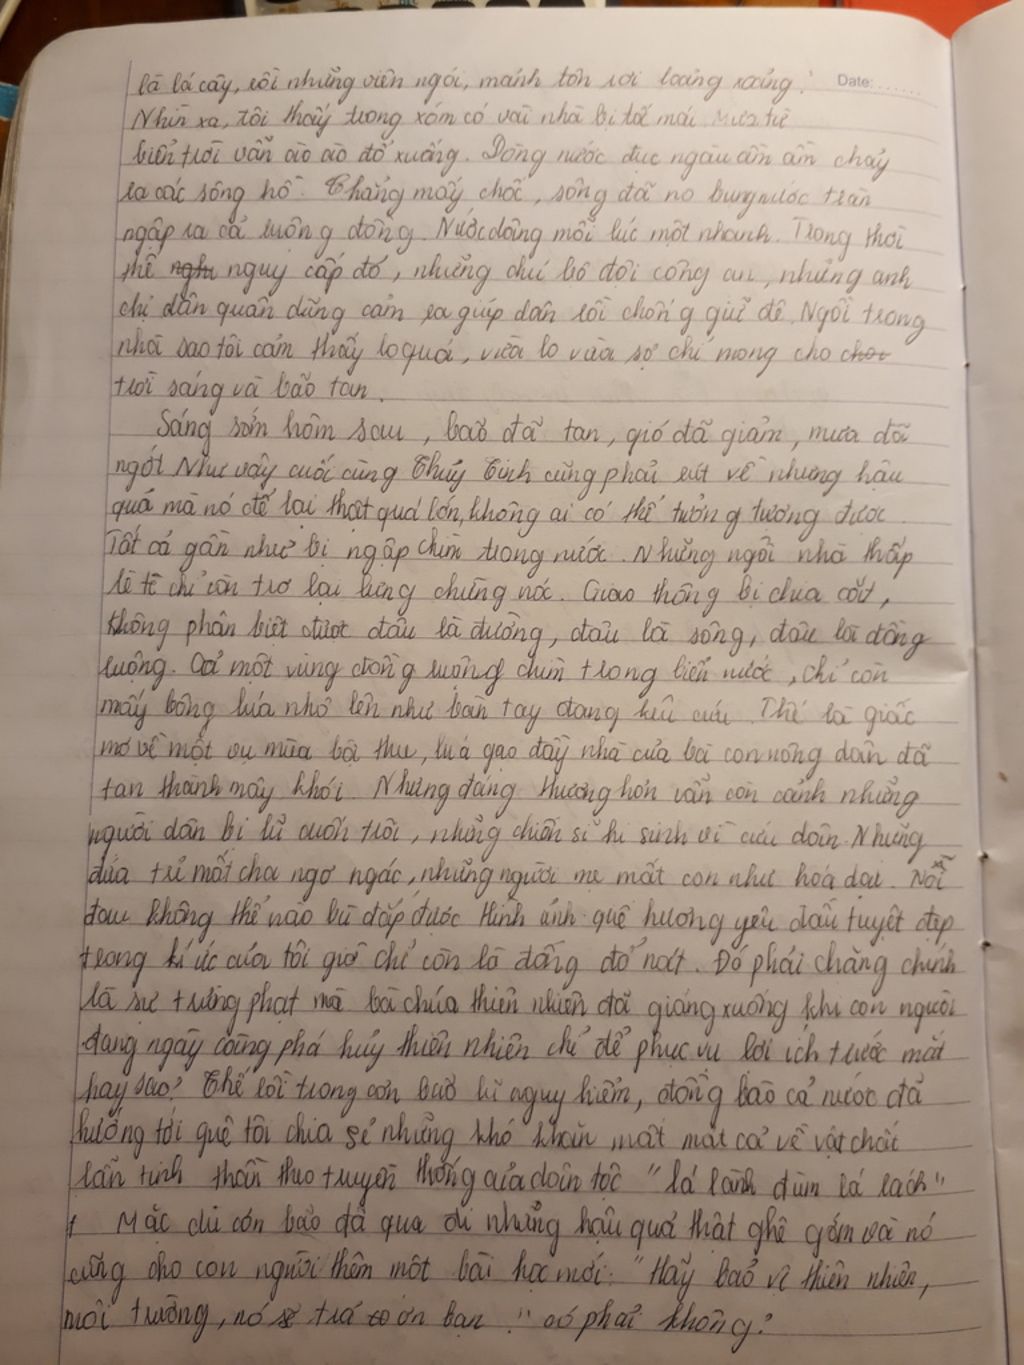 là lá cây, rồi những viên ngói, mảnh tôn rơi loảng xoảng. Date:
Nhìn xa, tôi thấy trong xóm có vài nhà bị tốc mái. Mưa từ
biển trời vẫn ào ào đổ xuống. Dòng nước đục ngầu ầm ầm chảy
ra các sông hồ. Chẳng mấy chốc, sông đã no bụng nước tràn
ngập ra cả ruộng đồng. Nước dâng mỗi lúc một nhanh. Trong thời
thế nguy cấp đó, những chú bộ đội công an, những anh
chị dân quân dũng cảm ra giúp dân rồi chống giữ đê. Ngồi trong
nhà sao tôi cảm thấy lo quá, vừa lo vừa sợ chỉ mong cho
trời sáng và bão tan.
Sáng sớm hôm sau, bão đã tan, gió đã giảm, mưa đã
ngớt. Như vậy cuối cùng Thủy Tinh cũng phải rút về nhưng hậu
quả mà nó để lại thật quá lớn, không ai có thể tưởng tượng được.
Tất cả gần như bị ngập chìm trong nước. Những ngôi nhà thấp
lè tè chỉ còn trơ lại lưng chừng nóc. Giao thông bị chia cắt,
không phân biệt được đâu là đường, đâu là sông, đâu là đồng
ruộng. Cả một vùng đồng ruộng chìm trong biển nước, chỉ còn
mấy bông lúa nhô lên như bàn tay đang kêu cứu. Thế là giấc
mơ về một vụ mùa bội thu, lúa gạo đầy nhà của bà con nông dân đã
tan thành mây khói. Nhưng đáng thương hơn vẫn còn cảnh những
người dân bị lũ cuốn trôi, những chiến sĩ hi sinh vì cứu dân. Những
đứa trẻ mất cha ngơ ngác, những người mẹ mất con như hoá dại. Nỗi
đau không thể nào bù đắp được. Hình ảnh quê hương yêu dấu tuyệt đẹp
trong kí ức của tôi giờ chỉ còn là đống đổ nát. Đó phải chăng chính
là sự trừng phạt mà bà chúa thiên nhiên đã giáng xuống khi con người
đang ngày càng phá hủy thiên nhiên chỉ để phục vụ lợi ích trước mắt
hay sao? Thế rồi trong cơn bão lũ nguy hiểm, đồng bào cả nước đã
hướng tới quê tôi chia sẻ những khó khăn mất mát cả về vật chất
lẫn tinh thần theo truyền thống của dân tộc "lá lành đùm lá rách"
Mặc dù cơn bão đã qua đi những hậu quả thật ghê gớm và nó
cũng cho con người thêm một bài học mới: "Hãy bảo vệ thiên nhiên,
môi trường, nó sẽ trả ơn bạn." có phải không?